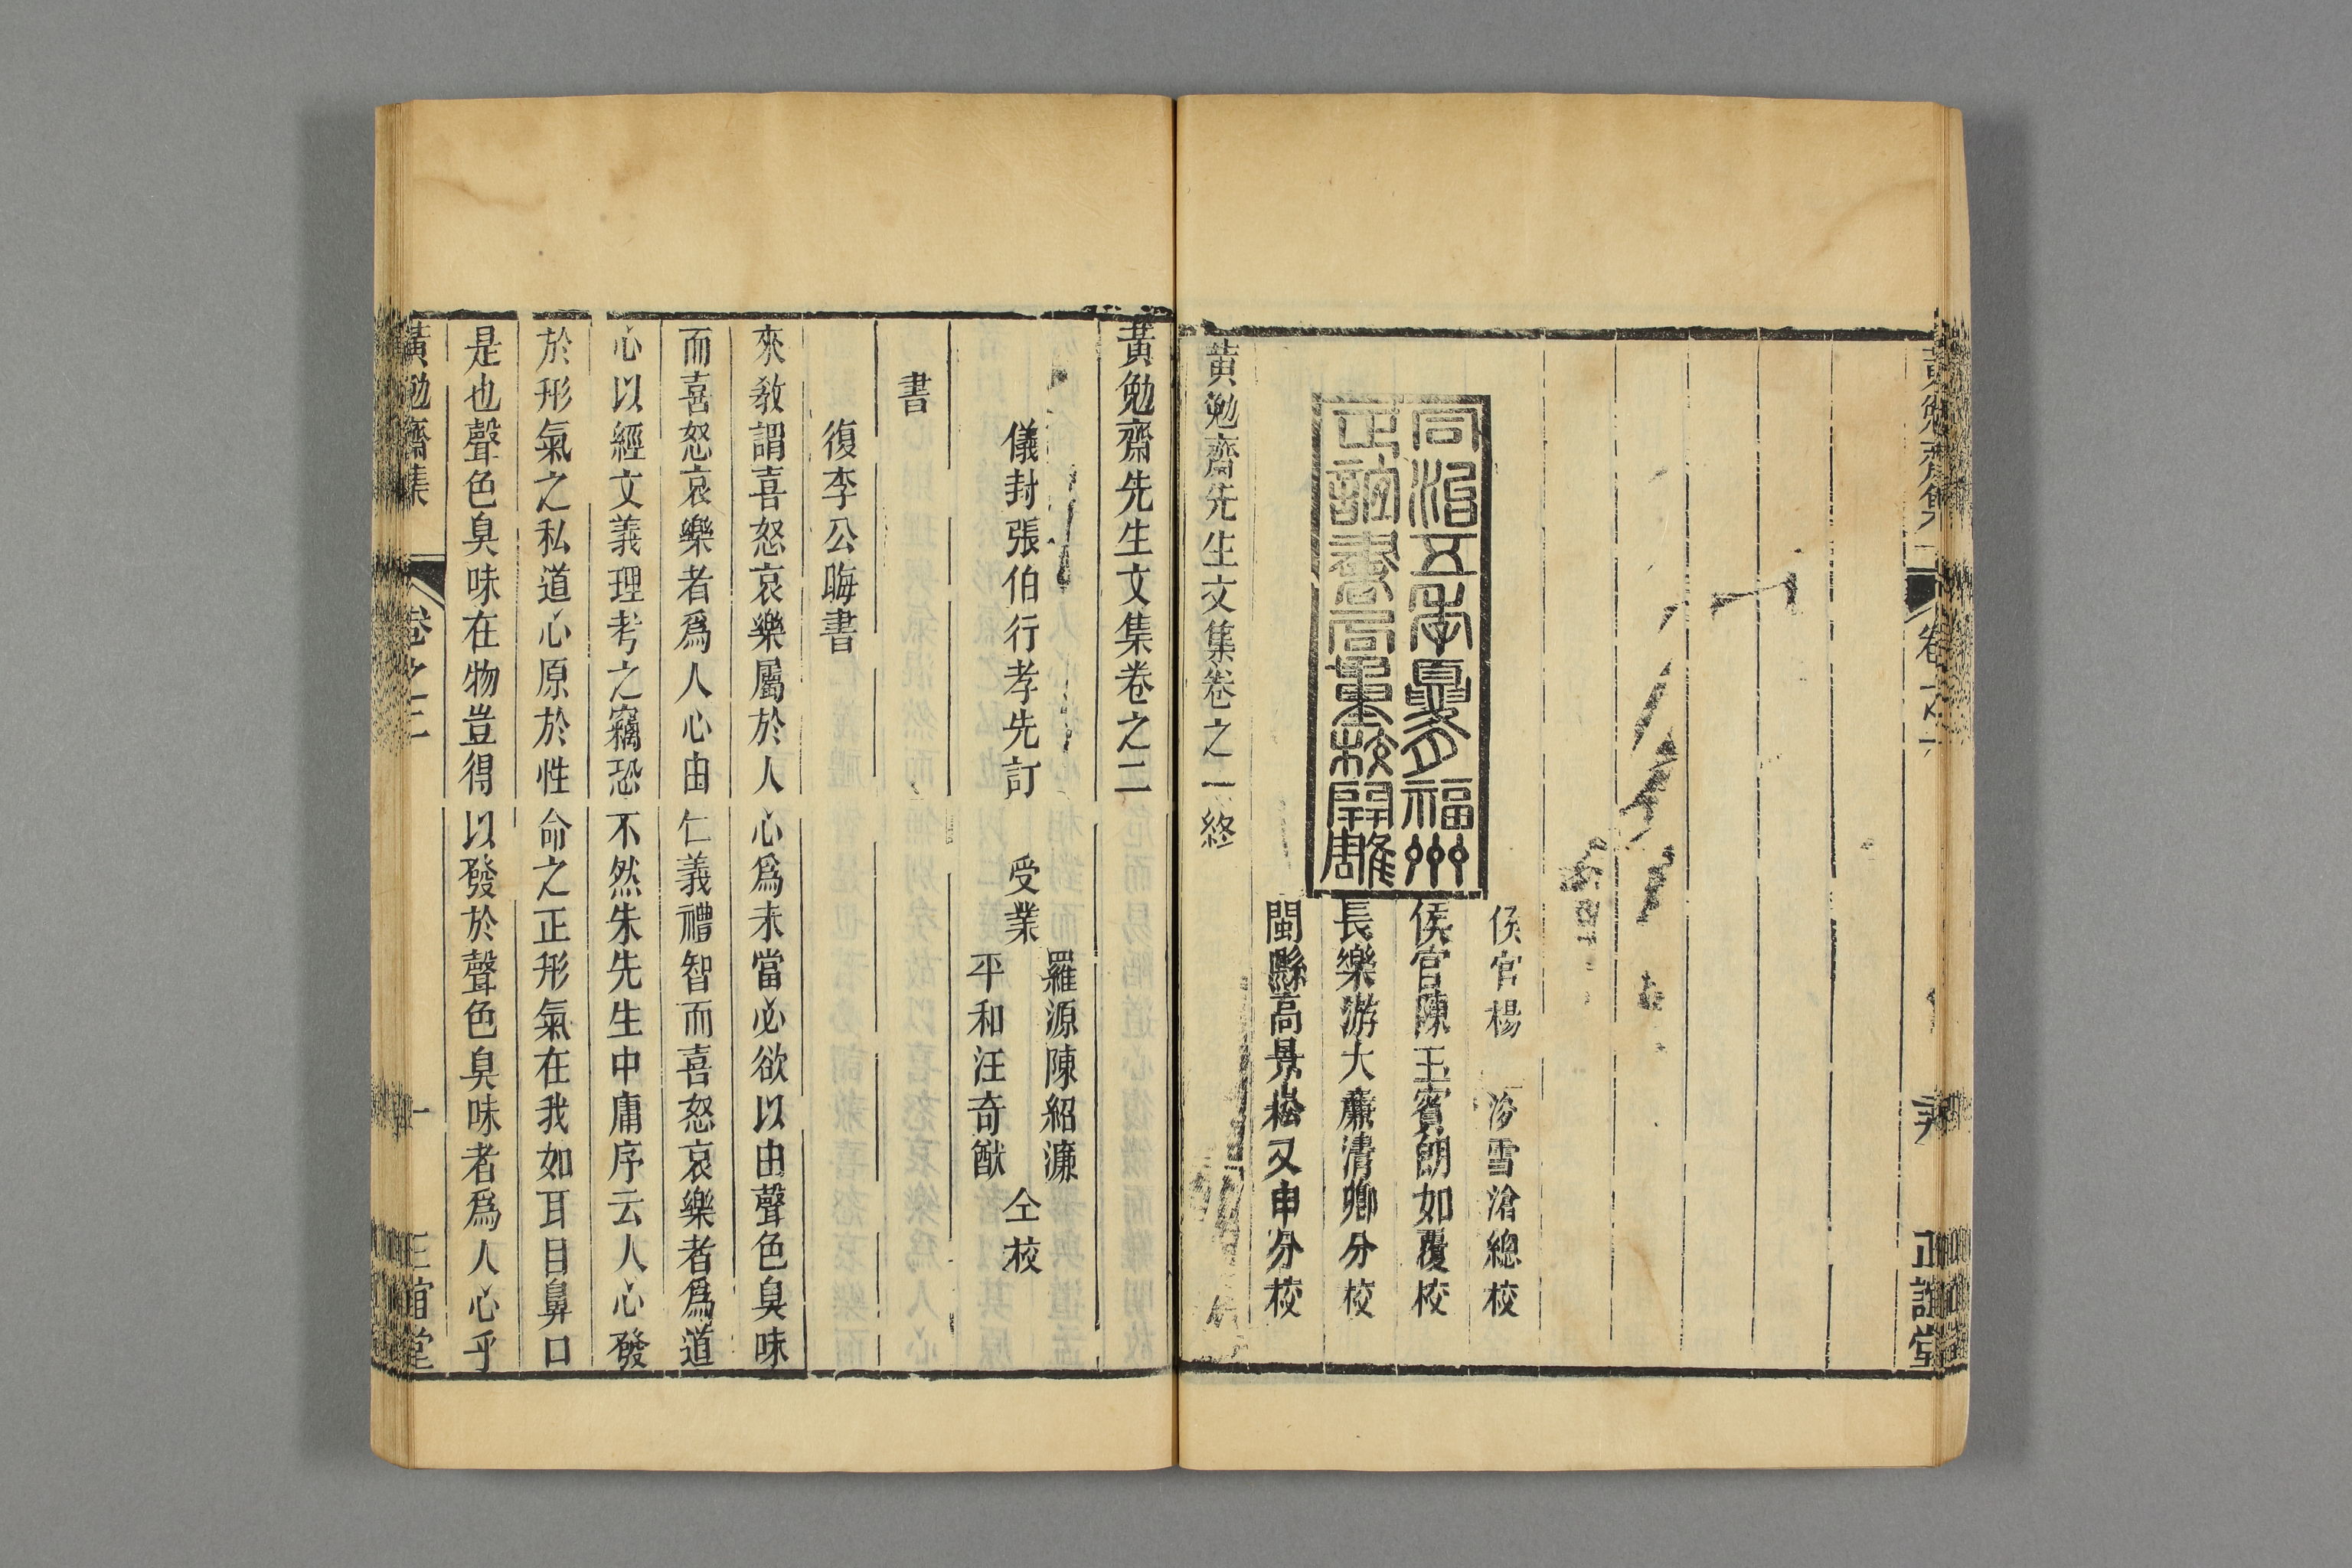 黃勉齋集
卷之一
正誼堂
同治五年夏月福州
正誼書局重校開雕
侯官楊 浚雪滄總校
侯官陳玉賓朗如覆校
長樂游大廉清卿分校
閩縣高景崧又申分校
黃勉齋先生文集卷之一終
黃勉齋先生文集卷之二
儀封張伯行孝先訂 受業
羅源陳紹濂
平和汪奇猷
仝校
書
復李公晦書
來教謂喜怒哀樂屬於人心爲未當必欲以由聲色臭味
而喜怒哀樂者爲人心由仁義禮智而喜怒哀樂者爲道
心以經文義理考之竊恐不然朱先生中庸序云人心發
於形氣之私道心原於性命之正形氣在我如耳目鼻口
是也聲色臭味在物豈得以發於聲色臭味者爲人心乎
黃勉齋集
卷之二
一
正誼堂